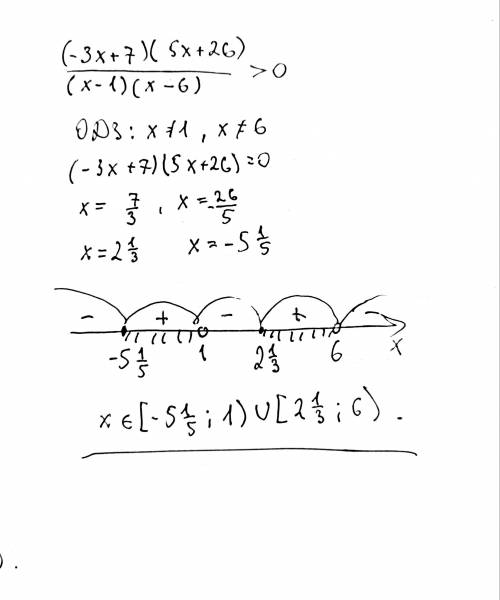 (-3x+7)(5x+26)/(x-1)(x-6) >0
ОДЗ: x≠1, x≠6
(-3x+7)(5x+26)=0
x= 7/3, x=-26/5
x=2 1/3 x=-5 1/5
- + - + -
-5 1/5 1 2 1/3 6 x
x∈[-5 1/5; 1)∪[2 1/3; 6).
).